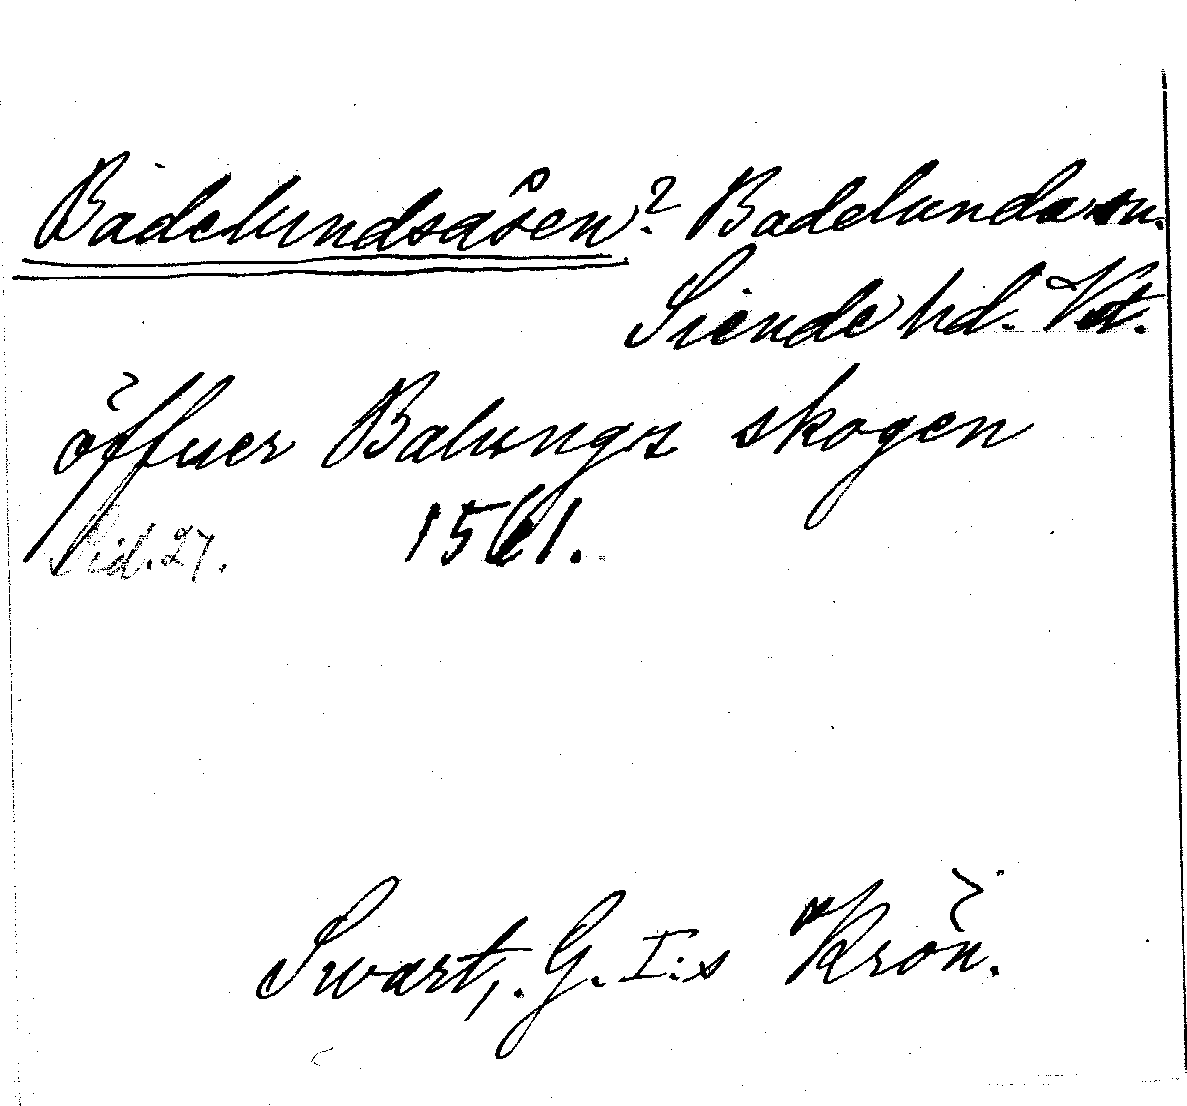 Badelundsåsen? Badelunda sn.
Siende hd. Vst.
öffuer Balungs skogen
Sid. 27. 1561.
Swart, G. I:s Krön.